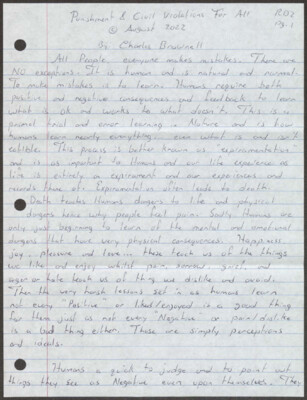 Punishment & Civil Violations For All
RD2
Pg. 1
© August 2022
By Charles Brownell
All People, everyone makes mistakes. There are
NO exceptions. It is human and is natural and normal.
To make mistakes is to learn. Humans require both
positive and negative consequences and feedback to learn
what is ok and works to what doesn't. This is a
primal trial and error learning. Nature and is how
humans learn nearly everything even what is and isn't
edible. This process is better known as "experimentation"
and is as important to Humans and our life experience as
life is entirely an experiment and our experiences and
records there of. Experimentation often leads to death.
Death teaches Humans dangers to life and physical
dangers hence why people feel pain. Sadly Humans are
only just beginning to learn of the mental and emotional
dangers that have very physical consequences. Happiness,
joy, pleasure and love... these teach us of the things
we like and enjoy whilst pain, sorrow, grief, and
anger or hate teach us of things we dislike and avoid.
Then the very harsh lessons set in as humans learn
not every "Positive" or liked/enjoyed is a good thing
for them just as not every "Negative" or pain/dislike
is a bad thing either. These are simply perceptions
and ideals.
Humans quick to judge and to point out
things they see as Negative even upon themselves. They